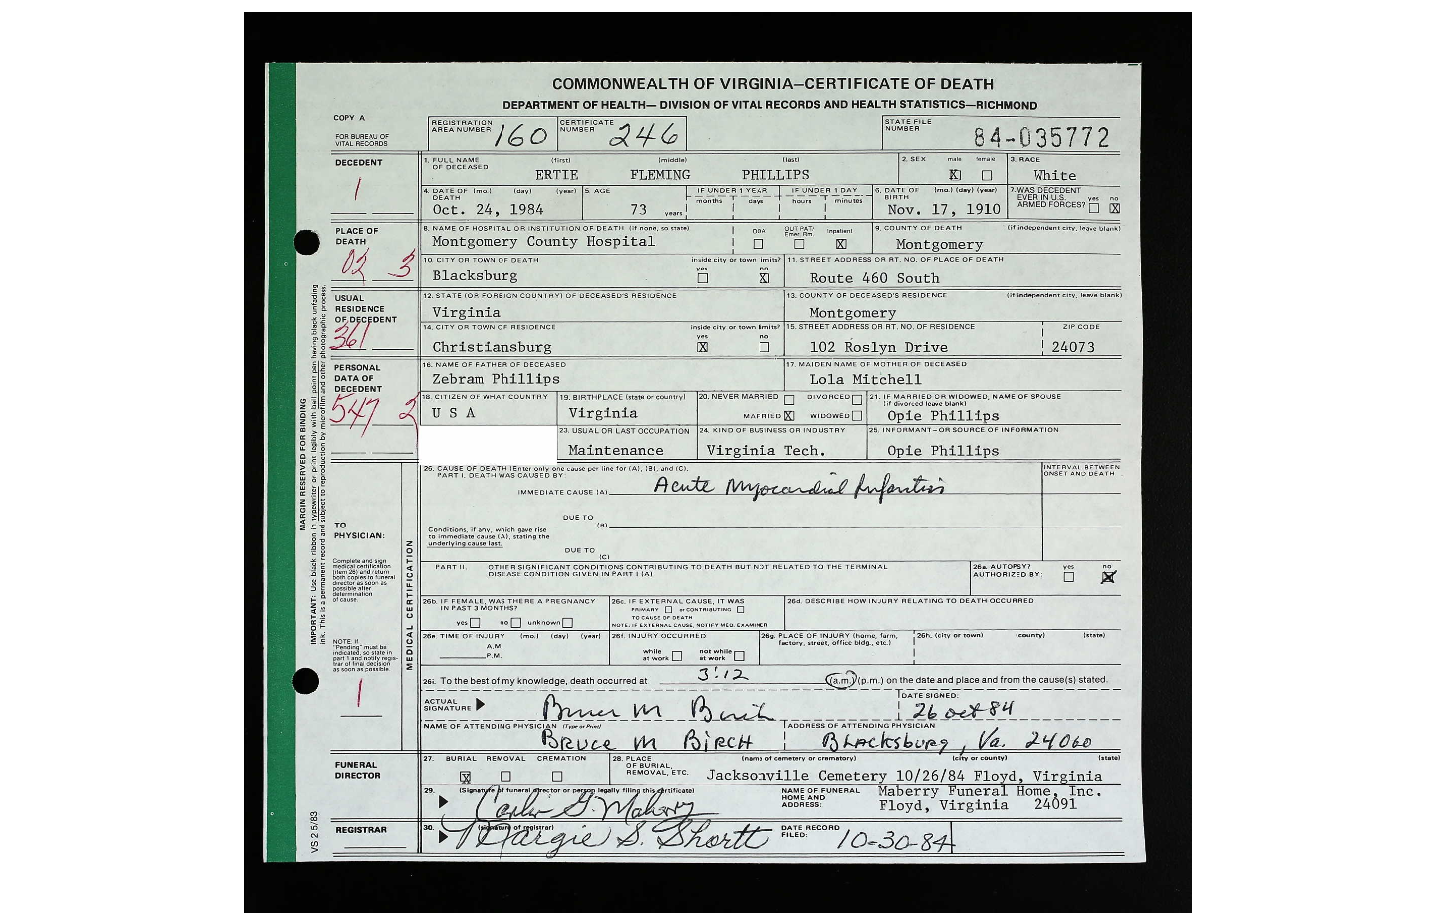 COMMONWEALTH OF VIRGINIA—CERTIFICATE OF DEATH
DEPARTMENT OF HEALTH— DIVISION OF VITAL RECORDS AND HEALTH STATISTICS—RICHMOND
COPY A
FOR BUREAU OF VITAL RECORDS
REGISTRATION AREA NUMBER 160
CERTIFICATE NUMBER 246
STATE FILE NUMBER 84-035772
DECEDENT
1
1. FULL NAME OF DECEASED (first) (middle) (last)
ERTIE FLEMING PHILLIPS
2. SEX male female
X
3. RACE
White
4. DATE OF DEATH (mo.) (day) (year)
Oct. 24, 1984
5. AGE
73 years
IF UNDER 1 YEAR months days
IF UNDER 1 DAY hours minutes
6. DATE OF BIRTH (mo.) (day) (year)
Nov. 17, 1910
7. WAS DECEDENT EVER IN U.S. ARMED FORCES? yes no
X
PLACE OF DEATH
02 3
8. NAME OF HOSPITAL OR INSTITUTION OF DEATH (if none, so state)
Montgomery County Hospital
DOA OUT PAT/ Emer. Rm. Inpatient
X
9. COUNTY OF DEATH (if independent city, leave blank)
Montgomery
10. CITY OR TOWN OF DEATH inside city or town limits? yes no
Blacksburg X
11. STREET ADDRESS OR RT. NO. OF PLACE OF DEATH
Route 460 South
USUAL RESIDENCE OF DECEDENT
361
12. STATE (OR FOREIGN COUNTRY) OF DECEASED'S RESIDENCE
Virginia
13. COUNTY OF DECEASED'S RESIDENCE (if independent city, leave blank)
Montgomery
14. CITY OR TOWN OF RESIDENCE inside city or town limits? yes no
Christiansburg X
15. STREET ADDRESS OR RT. NO. OF RESIDENCE ZIP CODE
102 Roslyn Drive 24073
PERSONAL DATA OF DECEDENT
547 2
16. NAME OF FATHER OF DECEASED
Zebram Phillips
17. MAIDEN NAME OF MOTHER OF DECEASED
Lola Mitchell
18. CITIZEN OF WHAT COUNTRY
U S A
19. BIRTHPLACE (state or country)
Virginia
20. NEVER MARRIED DIVORCED
MARRIED X WIDOWED
21. IF MARRIED OR WIDOWED, NAME OF SPOUSE (if divorced leave blank)
Opie Phillips
23. USUAL OR LAST OCCUPATION
Maintenance
24. KIND OF BUSINESS OR INDUSTRY
Virginia Tech.
25. INFORMANT—OR SOURCE OF INFORMATION
Opie Phillips
MARGIN RESERVED FOR BINDING
IMPORTANT: Use black ribbon in typewriter or print legibly with ball point pen having black unfading ink. This is a permanent record and subject to reproduction by microfilm and other photographic process.
TO PHYSICIAN:
Complete and sign medical certification (item 26) and return both copies to funeral director as soon as possible after determination of cause.
NOTE: If "Pending" must be indicated, so state in part 1 and notify registrar of final decision as soon as possible.
1
MEDICAL CERTIFICATION
26. CAUSE OF DEATH (Enter only one cause per line for (A), (B), and (C).
PART I. DEATH WAS CAUSED BY:
INTERVAL BETWEEN ONSET AND DEATH
IMMEDIATE CAUSE (A) Acute Myocardial Infarction
DUE TO (B)
Conditions, if any, which gave rise to immediate cause (A), stating the underlying cause last.
DUE TO (C)
PART II. OTHER SIGNIFICANT CONDITIONS CONTRIBUTING TO DEATH BUT NOT RELATED TO THE TERMINAL DISEASE CONDITION GIVEN IN PART I (A)
26a. AUTOPSY? AUTHORIZED BY: yes no
X
26b. IF FEMALE, WAS THERE A PREGNANCY IN PAST 3 MONTHS?
yes no unknown
26c. IF EXTERNAL CAUSE, IT WAS
PRIMARY or CONTRIBUTING
TO CAUSE OF DEATH
NOTE: IF EXTERNAL CAUSE, NOTIFY MED. EXAMINER
26d. DESCRIBE HOW INJURY RELATING TO DEATH OCCURRED
26e. TIME OF INJURY (mo.) (day) (year)
A.M
P.M.
26f. INJURY OCCURRED
while at work not while at work
26g. PLACE OF INJURY (home, farm, factory, street, office bldg., etc.)
26h. (city or town) (county) (state)
26i. To the best of my knowledge, death occurred at 3:12 (a.m.) (p.m.) on the date and place and from the cause(s) stated.
ACTUAL SIGNATURE Bruce M Birch
DATE SIGNED: 26 oct 84
NAME OF ATTENDING PHYSICIAN (Type or Print)
BRUCE M BIRCH
ADDRESS OF ATTENDING PHYSICIAN
Blacksburg, Va. 24060
FUNERAL DIRECTOR
27. BURIAL REMOVAL CREMATION
X
28. PLACE OF BURIAL, REMOVAL, ETC. (name of cemetery or crematory) (city or county) (state)
Jacksonville Cemetery 10/26/84 Floyd, Virginia
29. (Signature of funeral director or person legally filing this certificate)
NAME OF FUNERAL HOME AND ADDRESS:
Maberry Funeral Home, Inc.
Floyd, Virginia 24091
REGISTRAR
30. (signature of registrar)
Margie S. Shortt
DATE RECORD FILED: 10-30-84
VS 2 5/83